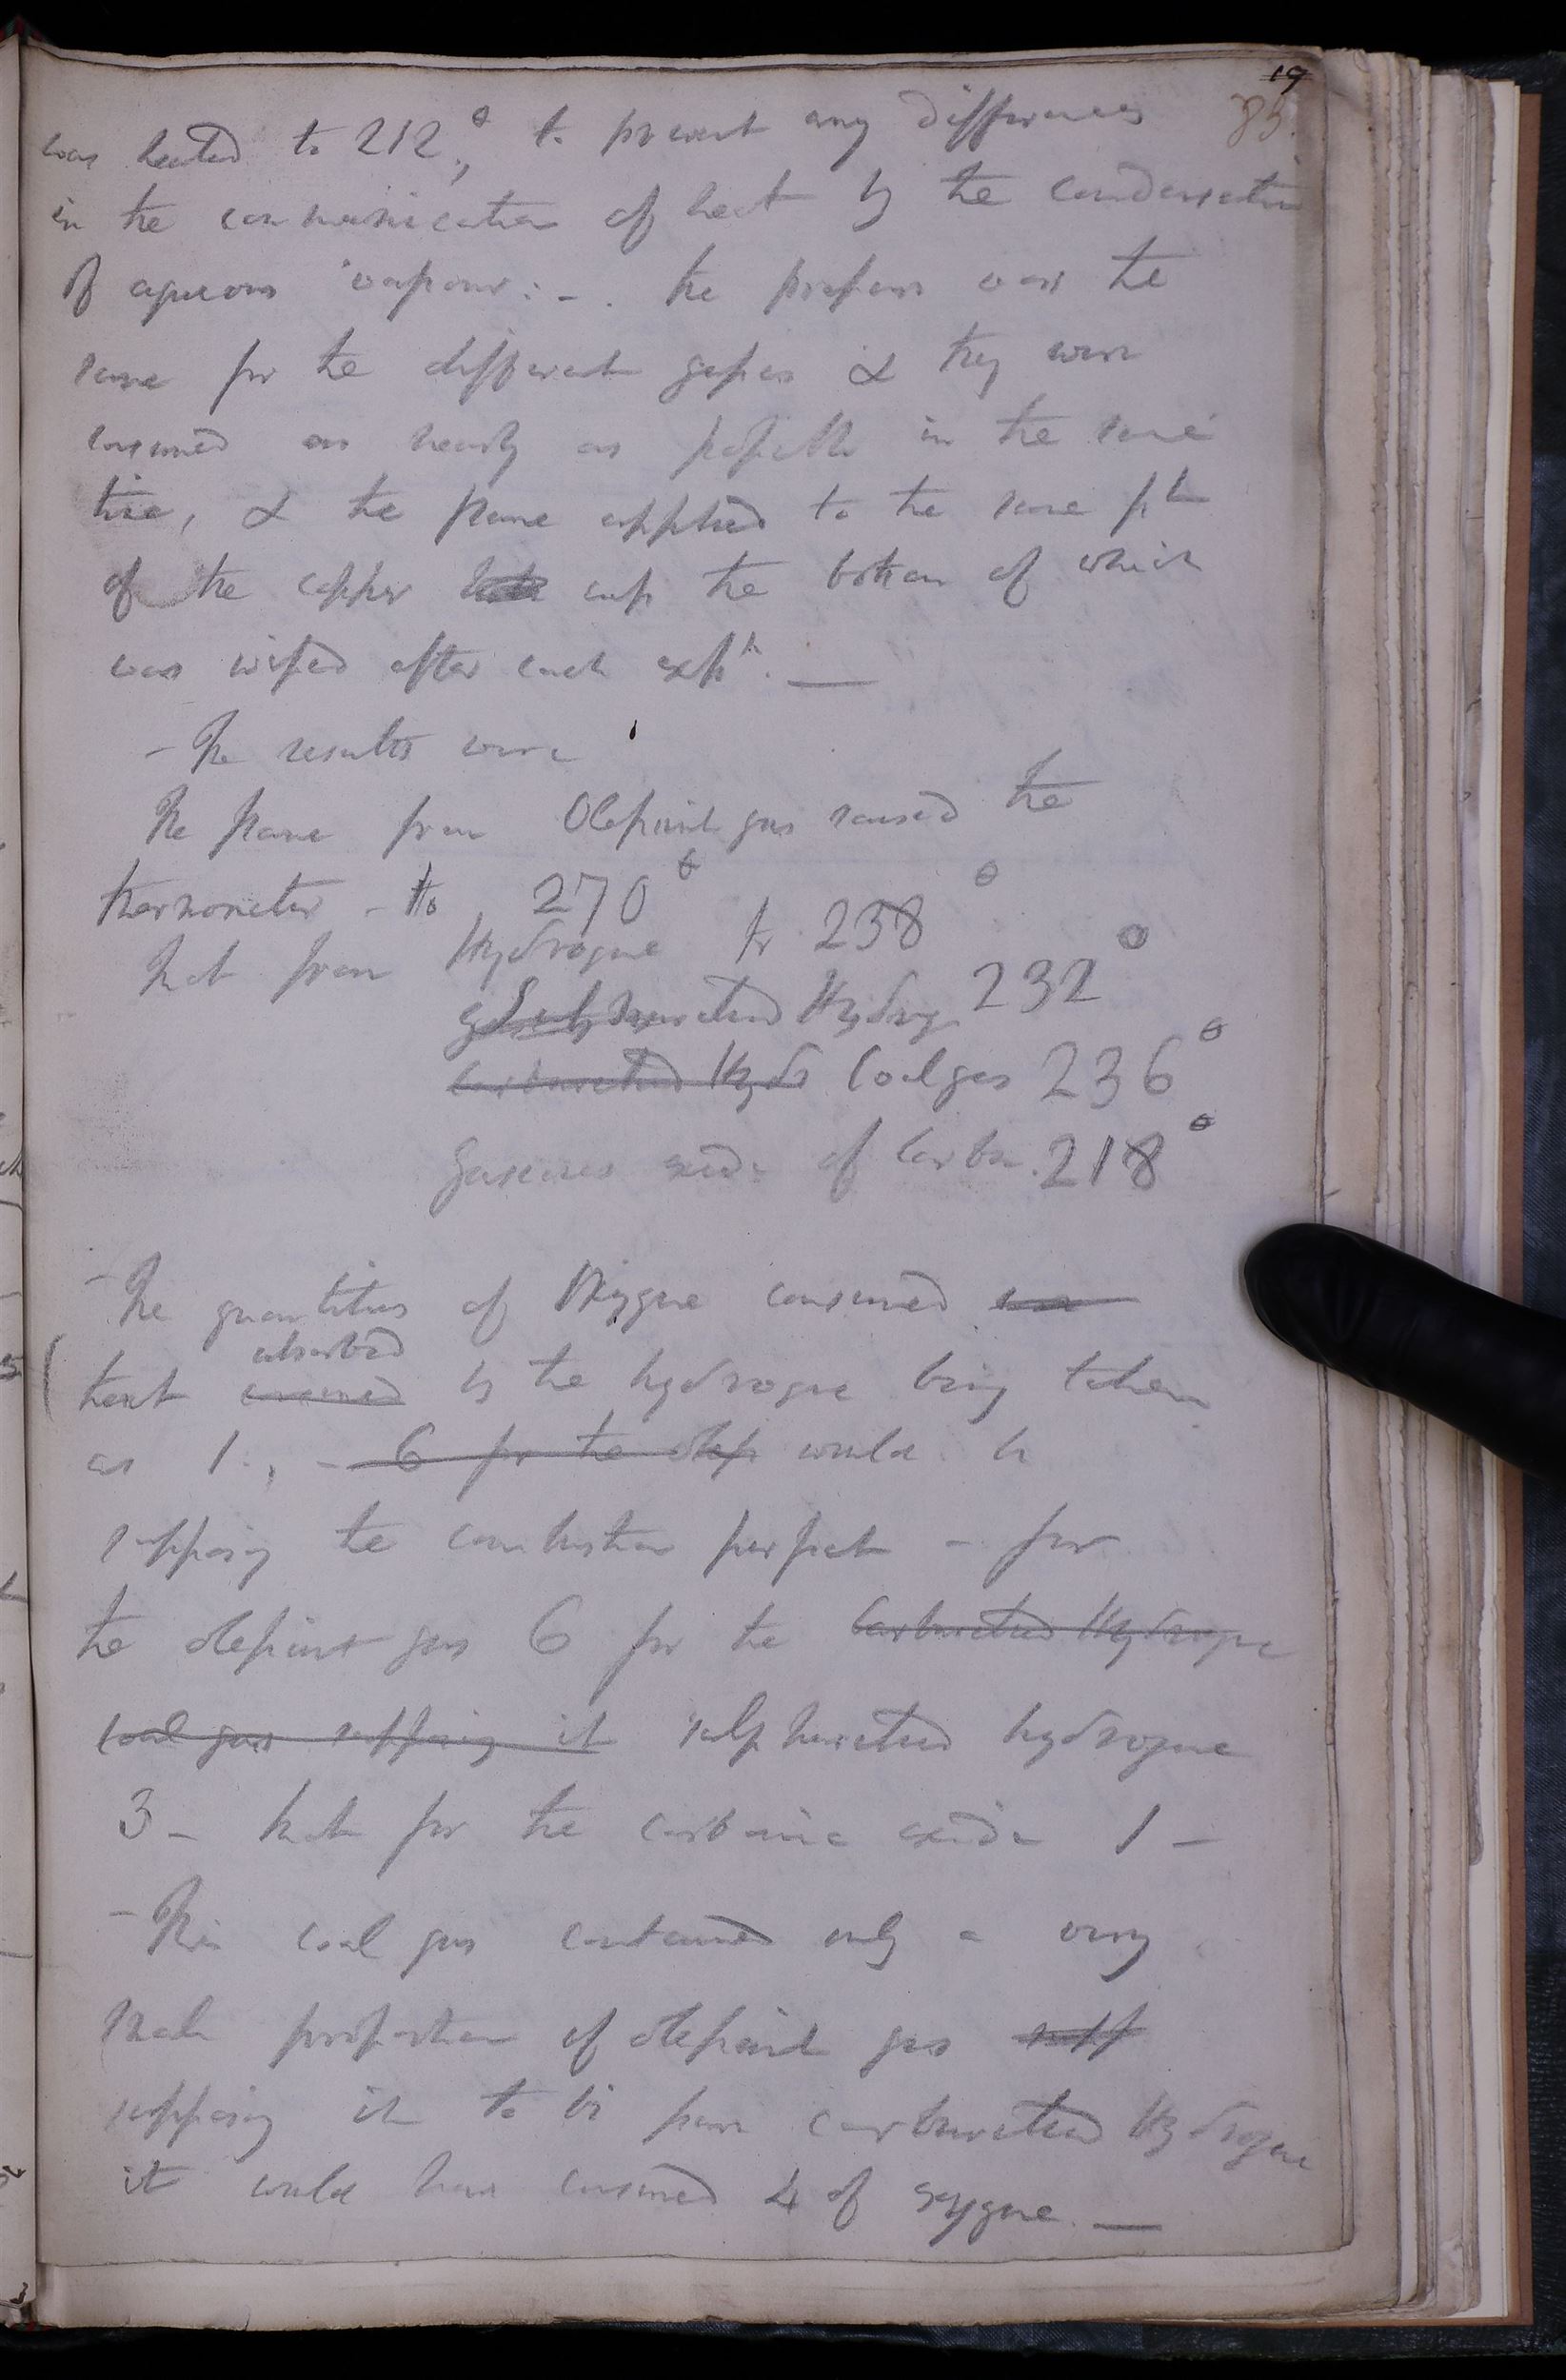 19
85.
was heated to 212°, to prevent any differences
in the communication of heat by the condensation
of aqueous vapour: -. the pressure was the
same for the different gases & they were
consumed as nearly as possible in the same
time, & the flame applied to the same pt
of the copper cup the bottom of which
was wiped after each expt. —
- The results were
The flame from Olefiant gas raised the
thermometer - to 270°
that from Hydrogene to 238°
Sulphuretted Hydrog 232°
Carburetted Hydr Coal gas 236°
Gaseous oxide of Carbon. 218°
- The quantities of Oxygene consumed
absorbed
that consumed by the hydrogene being taken
as 1., - 6 for the olef would be
supposing the combustion perfect - for
the olefiant gas 6 for the Carburetted Hydrogene
coal gas supposing it sulphuretted hydrogene
3 - that for the carbonic oxide 1 -
- This coal gas contained only a very
small proportion of olefiant gas supp
supposing it to be pure carburetted Hydrogene
it would have consumed 4 of oxygene. —